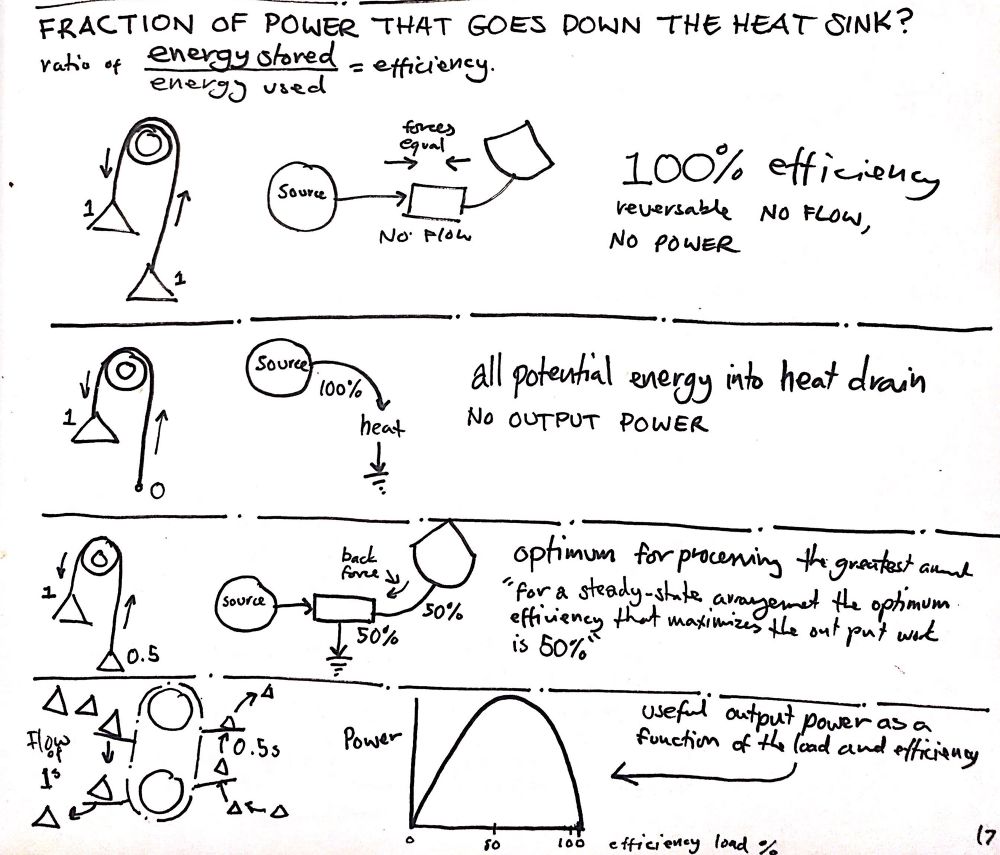 FRACTION OF POWER THAT GOES DOWN THE HEAT SINK?
ratio of energy stored / energy used = efficiency.
1
1
Source
forces equal
NO FLOW
100% efficiency
reversable NO FLOW,
NO POWER
1
0
Source
100%
heat
all potential energy into heat drain
NO OUTPUT POWER
1
0.5
source
back force
50%
50%
optimum for processing the greatest
"for a steady-state arrangemet the optimum
efficiency that maximizes the out put work
is 50%"
Flow
of
1s
0.5s
Power
0
50
100
efficiency load %
useful output power as a
function of the load and efficiency
17